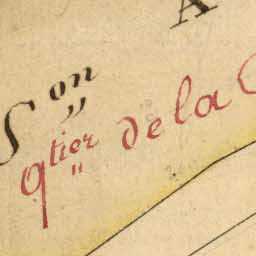 A
S on "
qtier " de la C